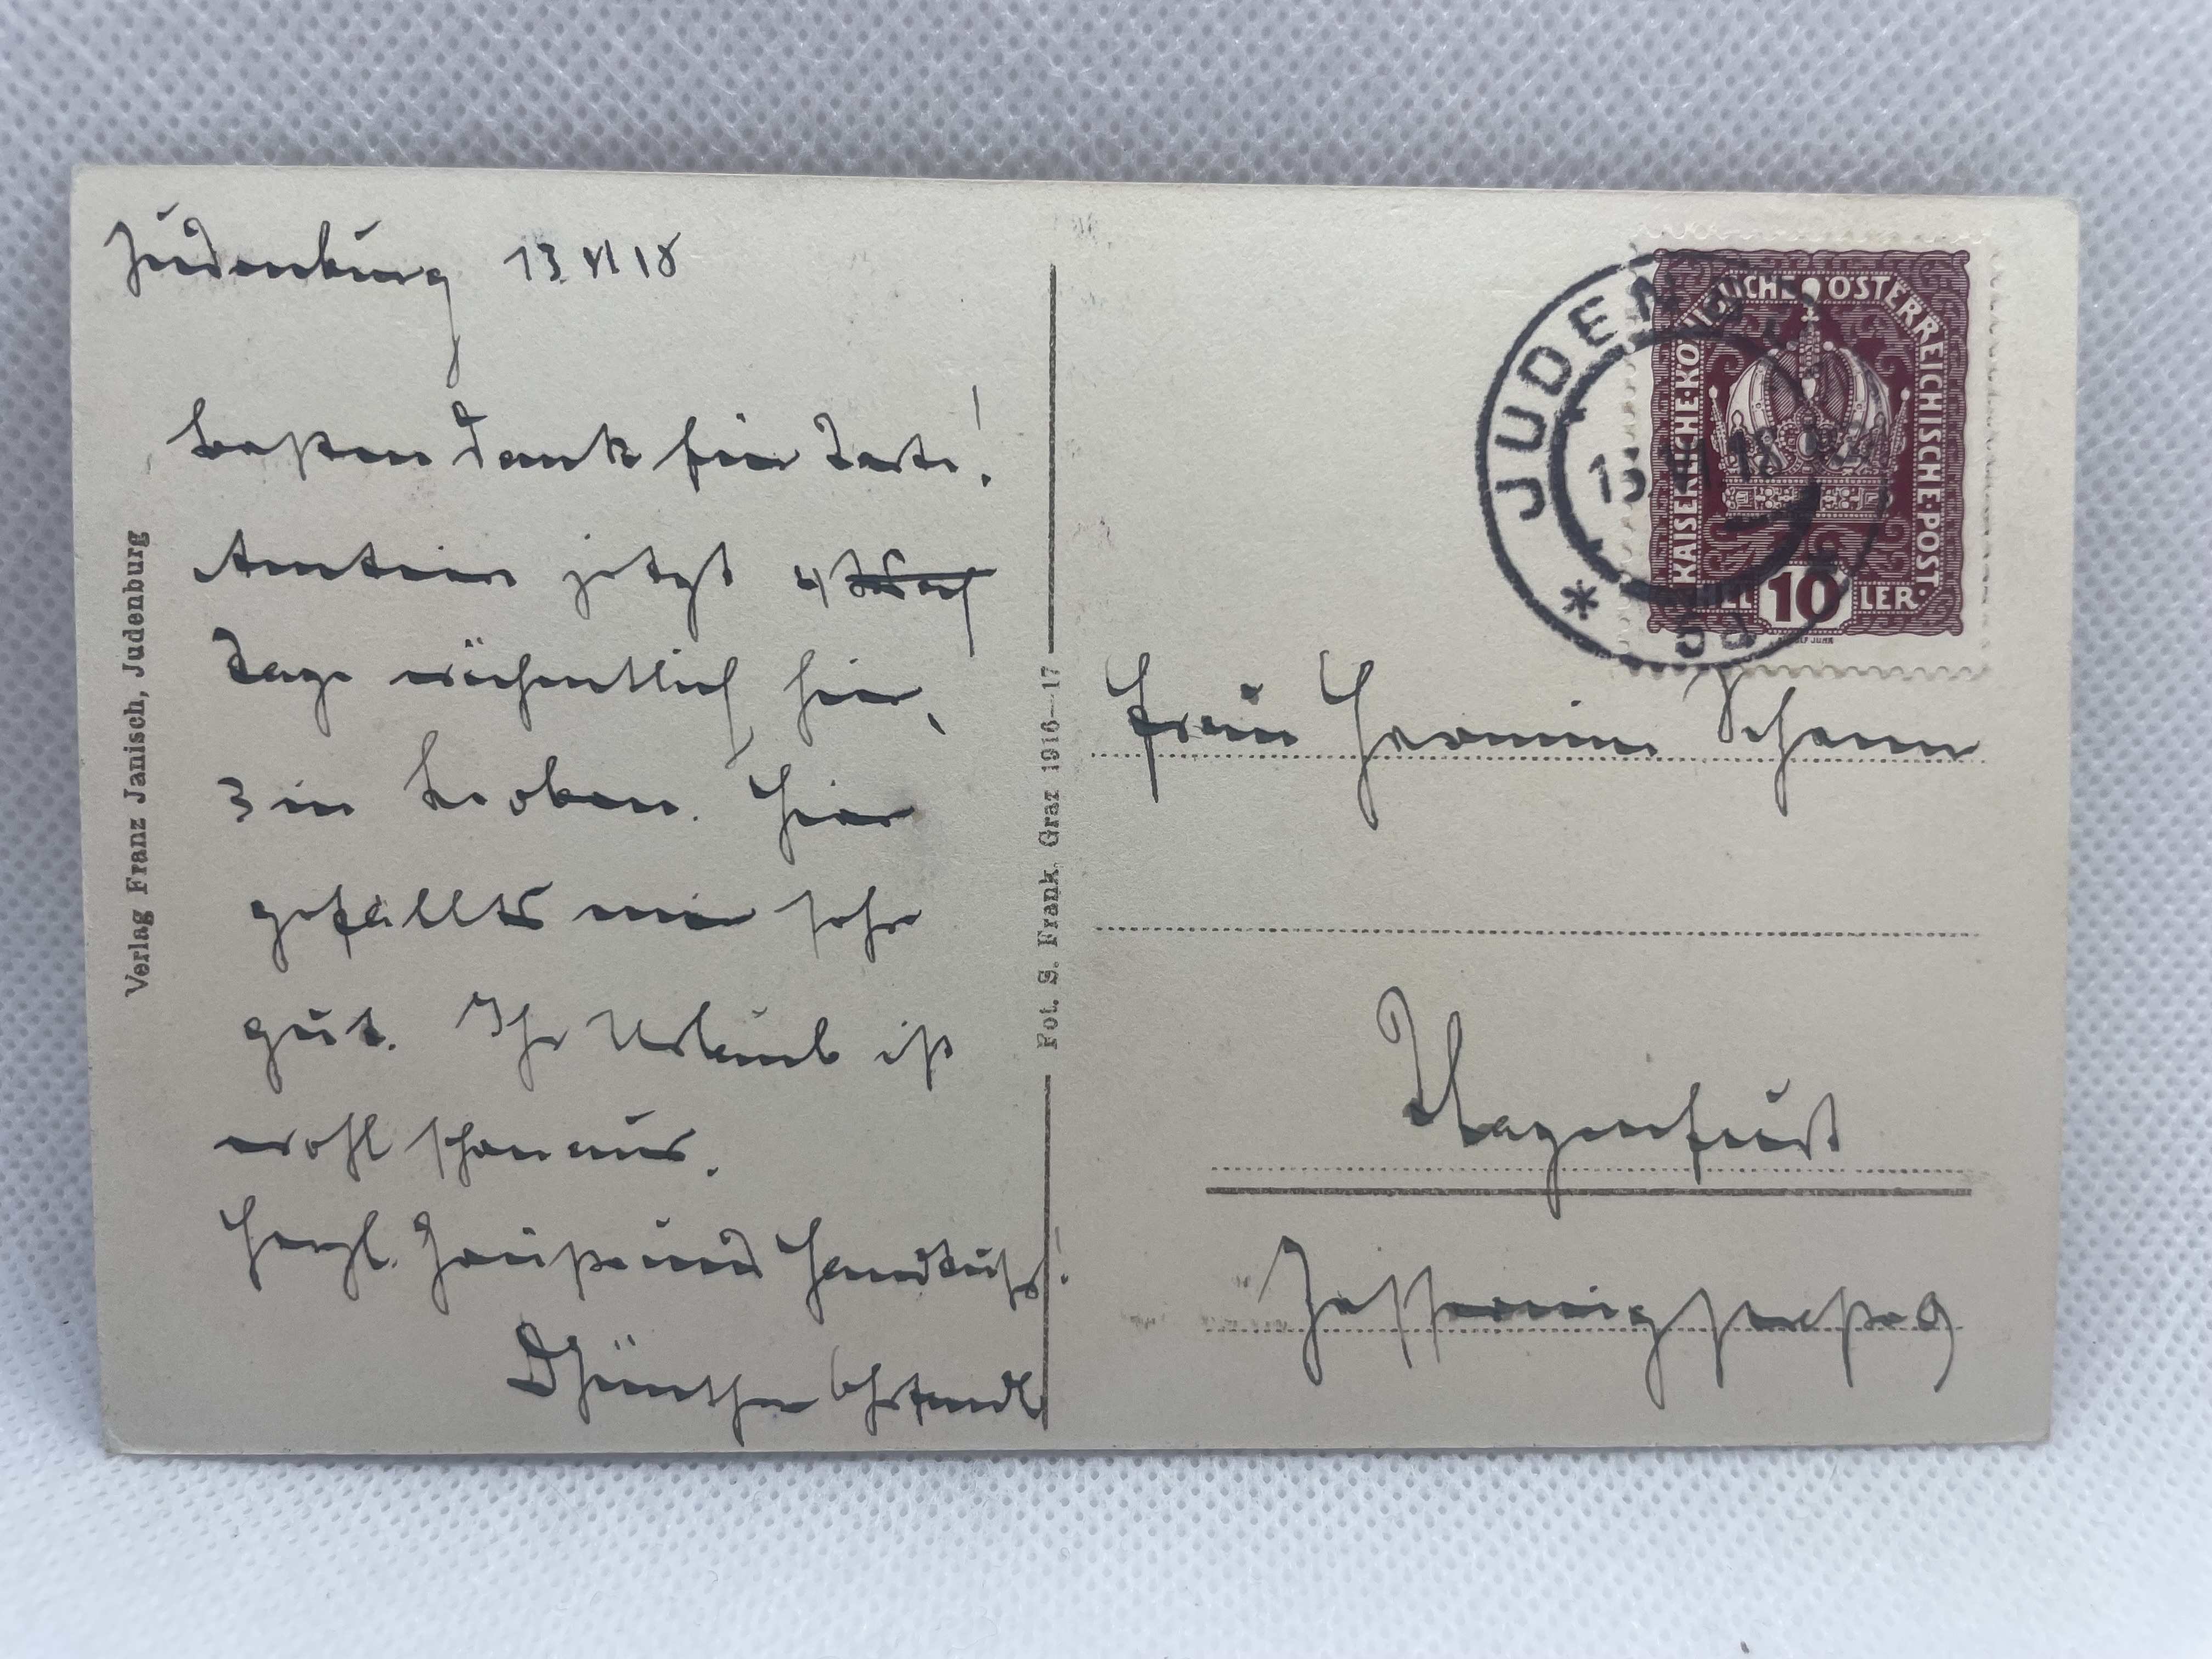 Judenburg 13 VI 18
besten Dank für Karte!
Amtiere jetzt 4
Tage wöchentlich hier,
3 in Leoben. Hier
gefällts mir sehr
gut. Ihr Urlaub ist
wohl schon aus.
Herzl. Grüße und Handkuß!
Günther
Verlag Franz Janisch, Judenburg
Fot. S. Frank, Graz 1916–17
JUDENBURG
13. VI 18
* 5a
KAISERLICHE KÖNIGLICHE ÖSTERREICHISCHE POST
HELLER
10
Frau Hermine
Klagenfurt
9